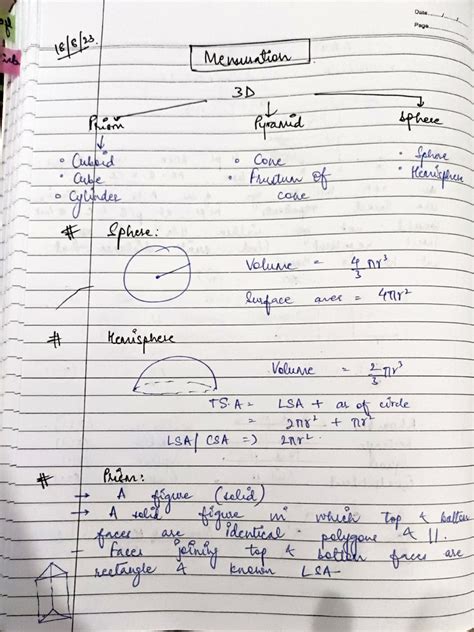 Date / /
Page
18/8/23
Mensuration
3D
Prism Pyramid Sphere
• Cuboid • Cone • Sphere
• Cube • Frustum of • Hemisphere
• Cylinder cone
# Sphere:
Volume = 4/3 πr³
Surface area = 4πr²
# Hemisphere
Volume = 2/3 πr³
T.S.A = LSA + ar of circle
= 2πr² + πr²
LSA/ CSA => 2πr²
# Prism:
→ A figure (solid)
→ A solid figure in which top & bottom
faces are identical polygone & ||.
- Faces joining top & bottom faces are
rectangle & known LSA